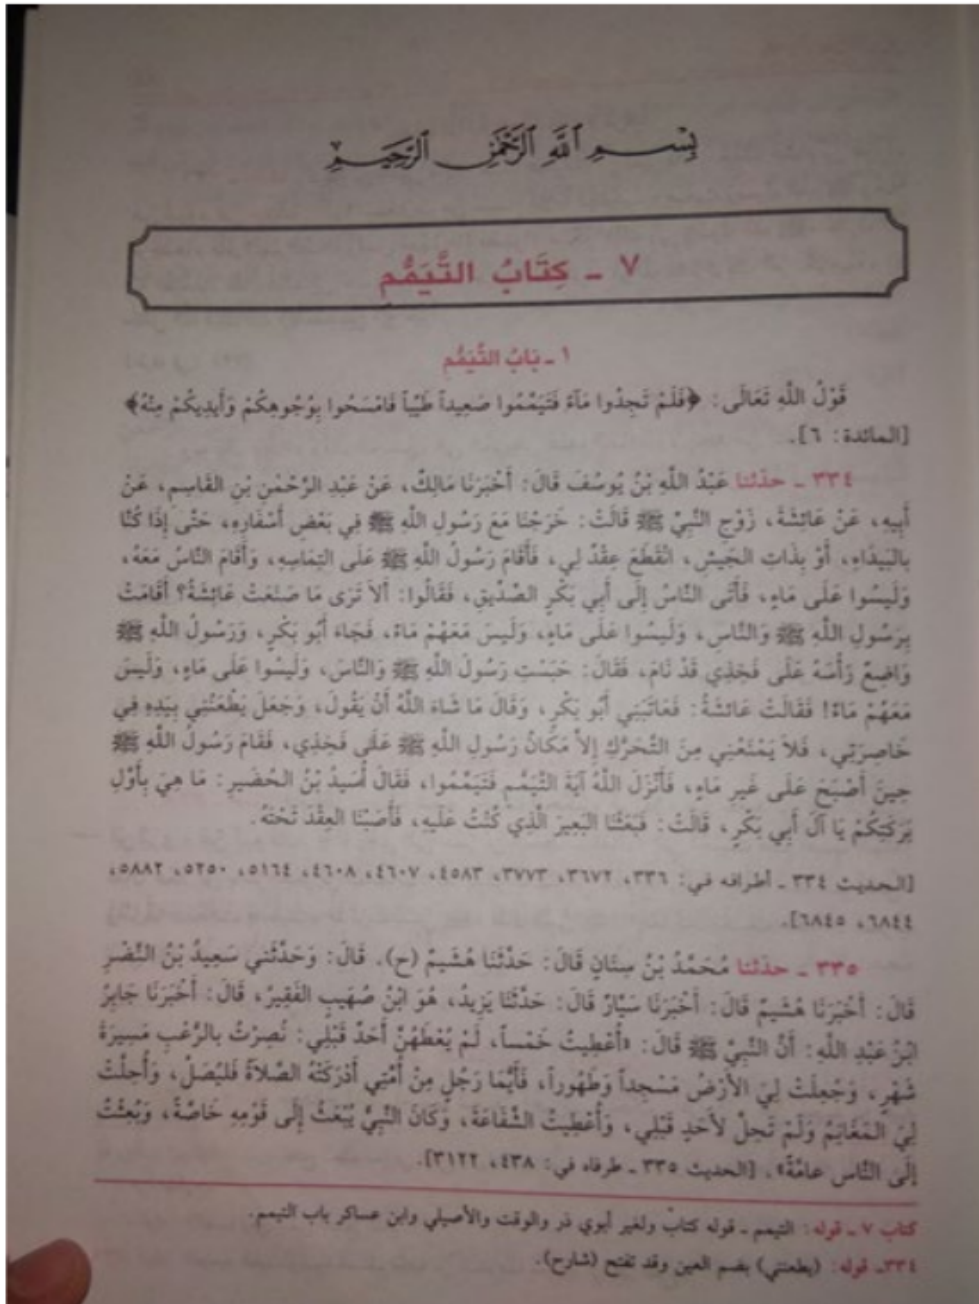 بِسْمِ ٱللَّهِ ٱلرَّحْمَٰنِ ٱلرَّحِيمِ
٧ - كِتَابُ التَّيَمُّم
١ - بَابُ التَّيَمُّمِ
قَوْلُ اللَّهِ تَعَالَى: ﴿فَلَمْ تَجِدُوا مَاءً فَتَيَمَّمُوا صَعِيداً طَيِّباً فَامْسَحُوا بِوُجُوهِكُمْ وَأَيْدِيكُمْ مِنْهُ﴾
[المائدة: ٦].
٣٣٤ - حدّثنا عَبْدُ اللَّهِ بْنُ يُوسُفَ قَالَ: أَخْبَرَنَا مَالِكٌ، عَنْ عَبْدِ الرَّحْمٰنِ بْنِ القَاسِمِ، عَنْ
أَبِيهِ، عَنْ عَائِشَةَ، زَوْجِ النَّبِيِّ ﷺ قَالَتْ: خَرَجْنَا مَعَ رَسُولِ اللَّهِ ﷺ فِي بَعْضِ أَسْفَارِهِ، حَتَّى إِذَا كُنَّا
بِالبَيْدَاءِ، أَوْ بِذَاتِ الجَيْشِ، انْقَطَعَ عِقْدٌ لِي، فَأَقَامَ رَسُولُ اللَّهِ ﷺ عَلَى التِمَاسِهِ، وَأَقَامَ النَّاسُ مَعَهُ،
وَلَيْسُوا عَلَى مَاءٍ، فَأَتَى النَّاسُ إِلَى أَبِي بَكْرٍ الصِّدِّيقِ، فَقَالُوا: أَلاَ تَرَى مَا صَنَعَتْ عَائِشَةُ؟ أَقَامَتْ
بِرَسُولِ اللَّهِ ﷺ وَالنَّاسِ، وَلَيْسُوا عَلَى مَاءٍ، وَلَيْسَ مَعَهُمْ مَاءٌ، فَجَاءَ أَبُو بَكْرٍ، وَرَسُولُ اللَّهِ ﷺ
وَاضِعٌ رَأْسَهُ عَلَى فَخِذِي قَدْ نَامَ، فَقَالَ: حَبَسْتِ رَسُولَ اللَّهِ ﷺ وَالنَّاسَ، وَلَيْسُوا عَلَى مَاءٍ، وَلَيْسَ
مَعَهُمْ مَاءٌ! فَقَالَتْ عَائِشَةُ: فَعَاتَبَنِي أَبُو بَكْرٍ، وَقَالَ مَا شَاءَ اللَّهُ أَنْ يَقُولَ، وَجَعَلَ يَطْعُنُنِي بِيَدِهِ فِي
خَاصِرَتِي، فَلاَ يَمْنَعُنِي مِنَ التَّحَرُّكِ إِلاَّ مَكَانُ رَسُولِ اللَّهِ ﷺ عَلَى فَخِذِي، فَقَامَ رَسُولُ اللَّهِ ﷺ
حِينَ أَصْبَحَ عَلَى غَيرِ مَاءٍ، فَأَنْزَلَ اللَّهُ آيَةَ التَّيَمُّمِ فَتَيَمَّمُوا، فَقَالَ أُسَيدُ بْنُ الحُضَيرِ: مَا هِيَ بِأَوَّلِ
بَرَكَتِكُمْ يَا آلَ أَبِي بَكْرٍ، قَالَتْ: فَبَعَثْنَا البَعِيرَ الَّذِي كُنْتُ عَلَيهِ، فَأَصَبْنَا العِقْدَ تَحْتَهُ.
[الحديث ٣٣٤ - أطرافه في: ٣٣٦، ٣٦٧٢، ٣٧٧٣، ٤٥٨٣، ٤٦٠٧، ٤٦٠٨، ٥١٦٤، ٥٢٥٠، ٥٨٨٢،
٦٨٤٤، ٦٨٤٥].
٣٣٥ - حدّثنا مُحَمَّدُ بْنُ سِنَانٍ قَالَ: حَدَّثَنَا هُشَيمٌ (ح). قَالَ: وَحَدَّثَنِي سَعِيدُ بْنُ النَّضْرِ
قَالَ: أَخْبَرَنَا هُشَيمٌ قَالَ: أَخْبَرَنَا سَيَّارٌ قَالَ: حَدَّثَنَا يَزِيدُ، هُوَ ابْنُ صُهَيبٍ الفَقِيرُ، قَالَ: أَخْبَرَنَا جَابِرُ
ابْنُ عَبْدِ اللَّهِ: أَنَّ النَّبِيَّ ﷺ قَالَ: «أُعْطِيتُ خَمْساً، لَمْ يُعْطَهُنَّ أَحَدٌ قَبْلِي: نُصِرْتُ بِالرُّعْبِ مَسِيرَةَ
شَهْرٍ، وَجُعِلَتْ لِيَ الأَرْضُ مَسْجِداً وَطَهُوراً، فَأَيُّمَا رَجُلٍ مِنْ أُمَّتِي أَدْرَكَتْهُ الصَّلاَةُ فَليُصَلِّ، وَأُحِلَّتْ
لِيَ المَغَانِمُ وَلَمْ تَحِلَّ لأَحَدٍ قَبْلِي، وَأُعْطِيتُ الشَّفَاعَةَ، وَكَانَ النَّبِيُّ يُبْعَثُ إِلَى قَوْمِهِ خَاصَّةً، وَبُعِثْتُ
إِلَى النَّاسِ عامَّةً». [الحديث ٣٣٥ - طرفاه في: ٤٣٨، ٣١٢٢].
كتاب ٧ - قوله: التيمم - قوله كتابُ ولغير أبوي ذر والوقت والأصيلي وابن عساكر باب التيمم.
٣٣٤ - قوله: (يطعنني) بضم العين وقد تفتح (شارح).